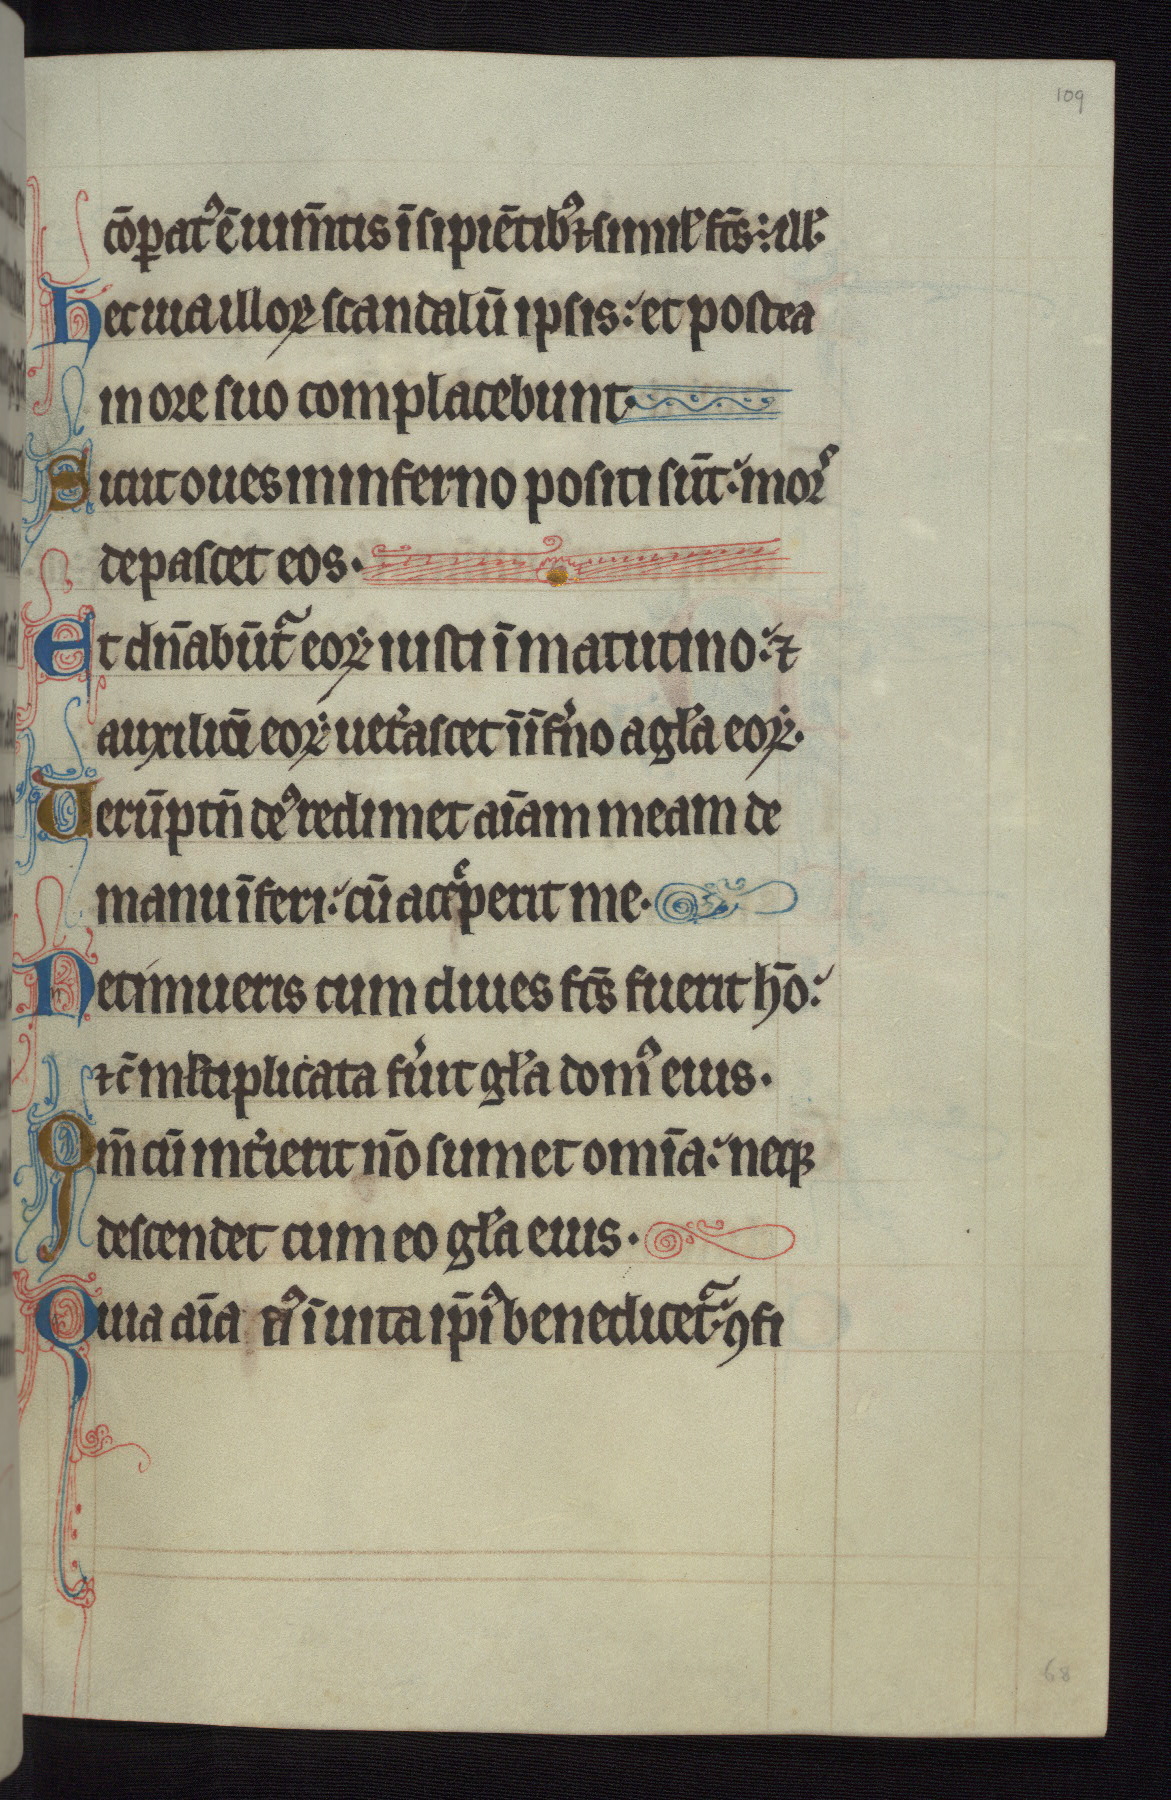 109
cōꝑatꝰ ē iumn̄tis īsipiētibꝫ ⁊ simil̓ fc̄s : ill̓.
Hec uia illoꝝ scandalū ipsis : et postea
in ore suo complacebunt.
Sicut oues in inferno positi sūt : mor̓
depascet eos.
Et dn̄abūt᷑ eoꝝ iusti ī matutino : ⁊
auxiliū eoꝝ uet̓ascet ī īf̓no a gl̓a eoꝝ.
Uerūptn̄ deꝰ redimet aīam meam de
manu īferi : cū acceperit me.
Ne timueris cum diues fc̄s fuerit hō :
⁊ c̄ ml̓tiplicata fu̓it gl̓a domꝰ eius.
Qm̄ cū int̓ierit nō sumet omīa : neqꝫ
descendet cum eo gl̓a eius.
Quia aīa eiꝰ ī uita ip̄iꝰ benedicet᷑ : ꝯfi
68